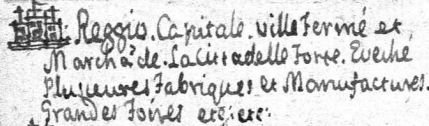 Reggio. Capitale. ville fermé et
Marchãde. La Cittadelle Forte. Eveche
Plusieures Fabriques et Manufactures.
Grandes Foires etc: etc: